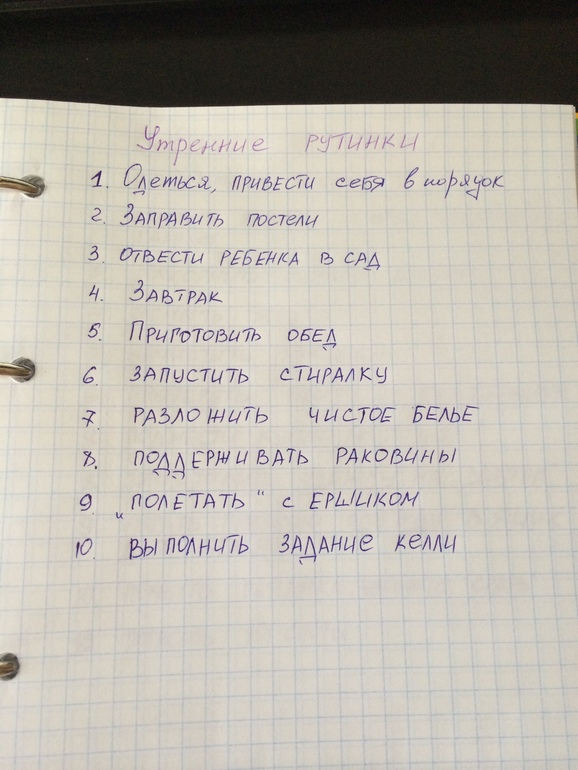 Утренние РУТИНКИ
1. Одеться, привести себя в порядок
2. Заправить постели
3. Отвести ребенка в сад
4. Завтрак
5. Приготовить обед
6. Запустить стиралку
7. Разложить чистое белье
8. Поддерживать раковины
9 "Полетать" с ершиком
10. Выполнить задание келли